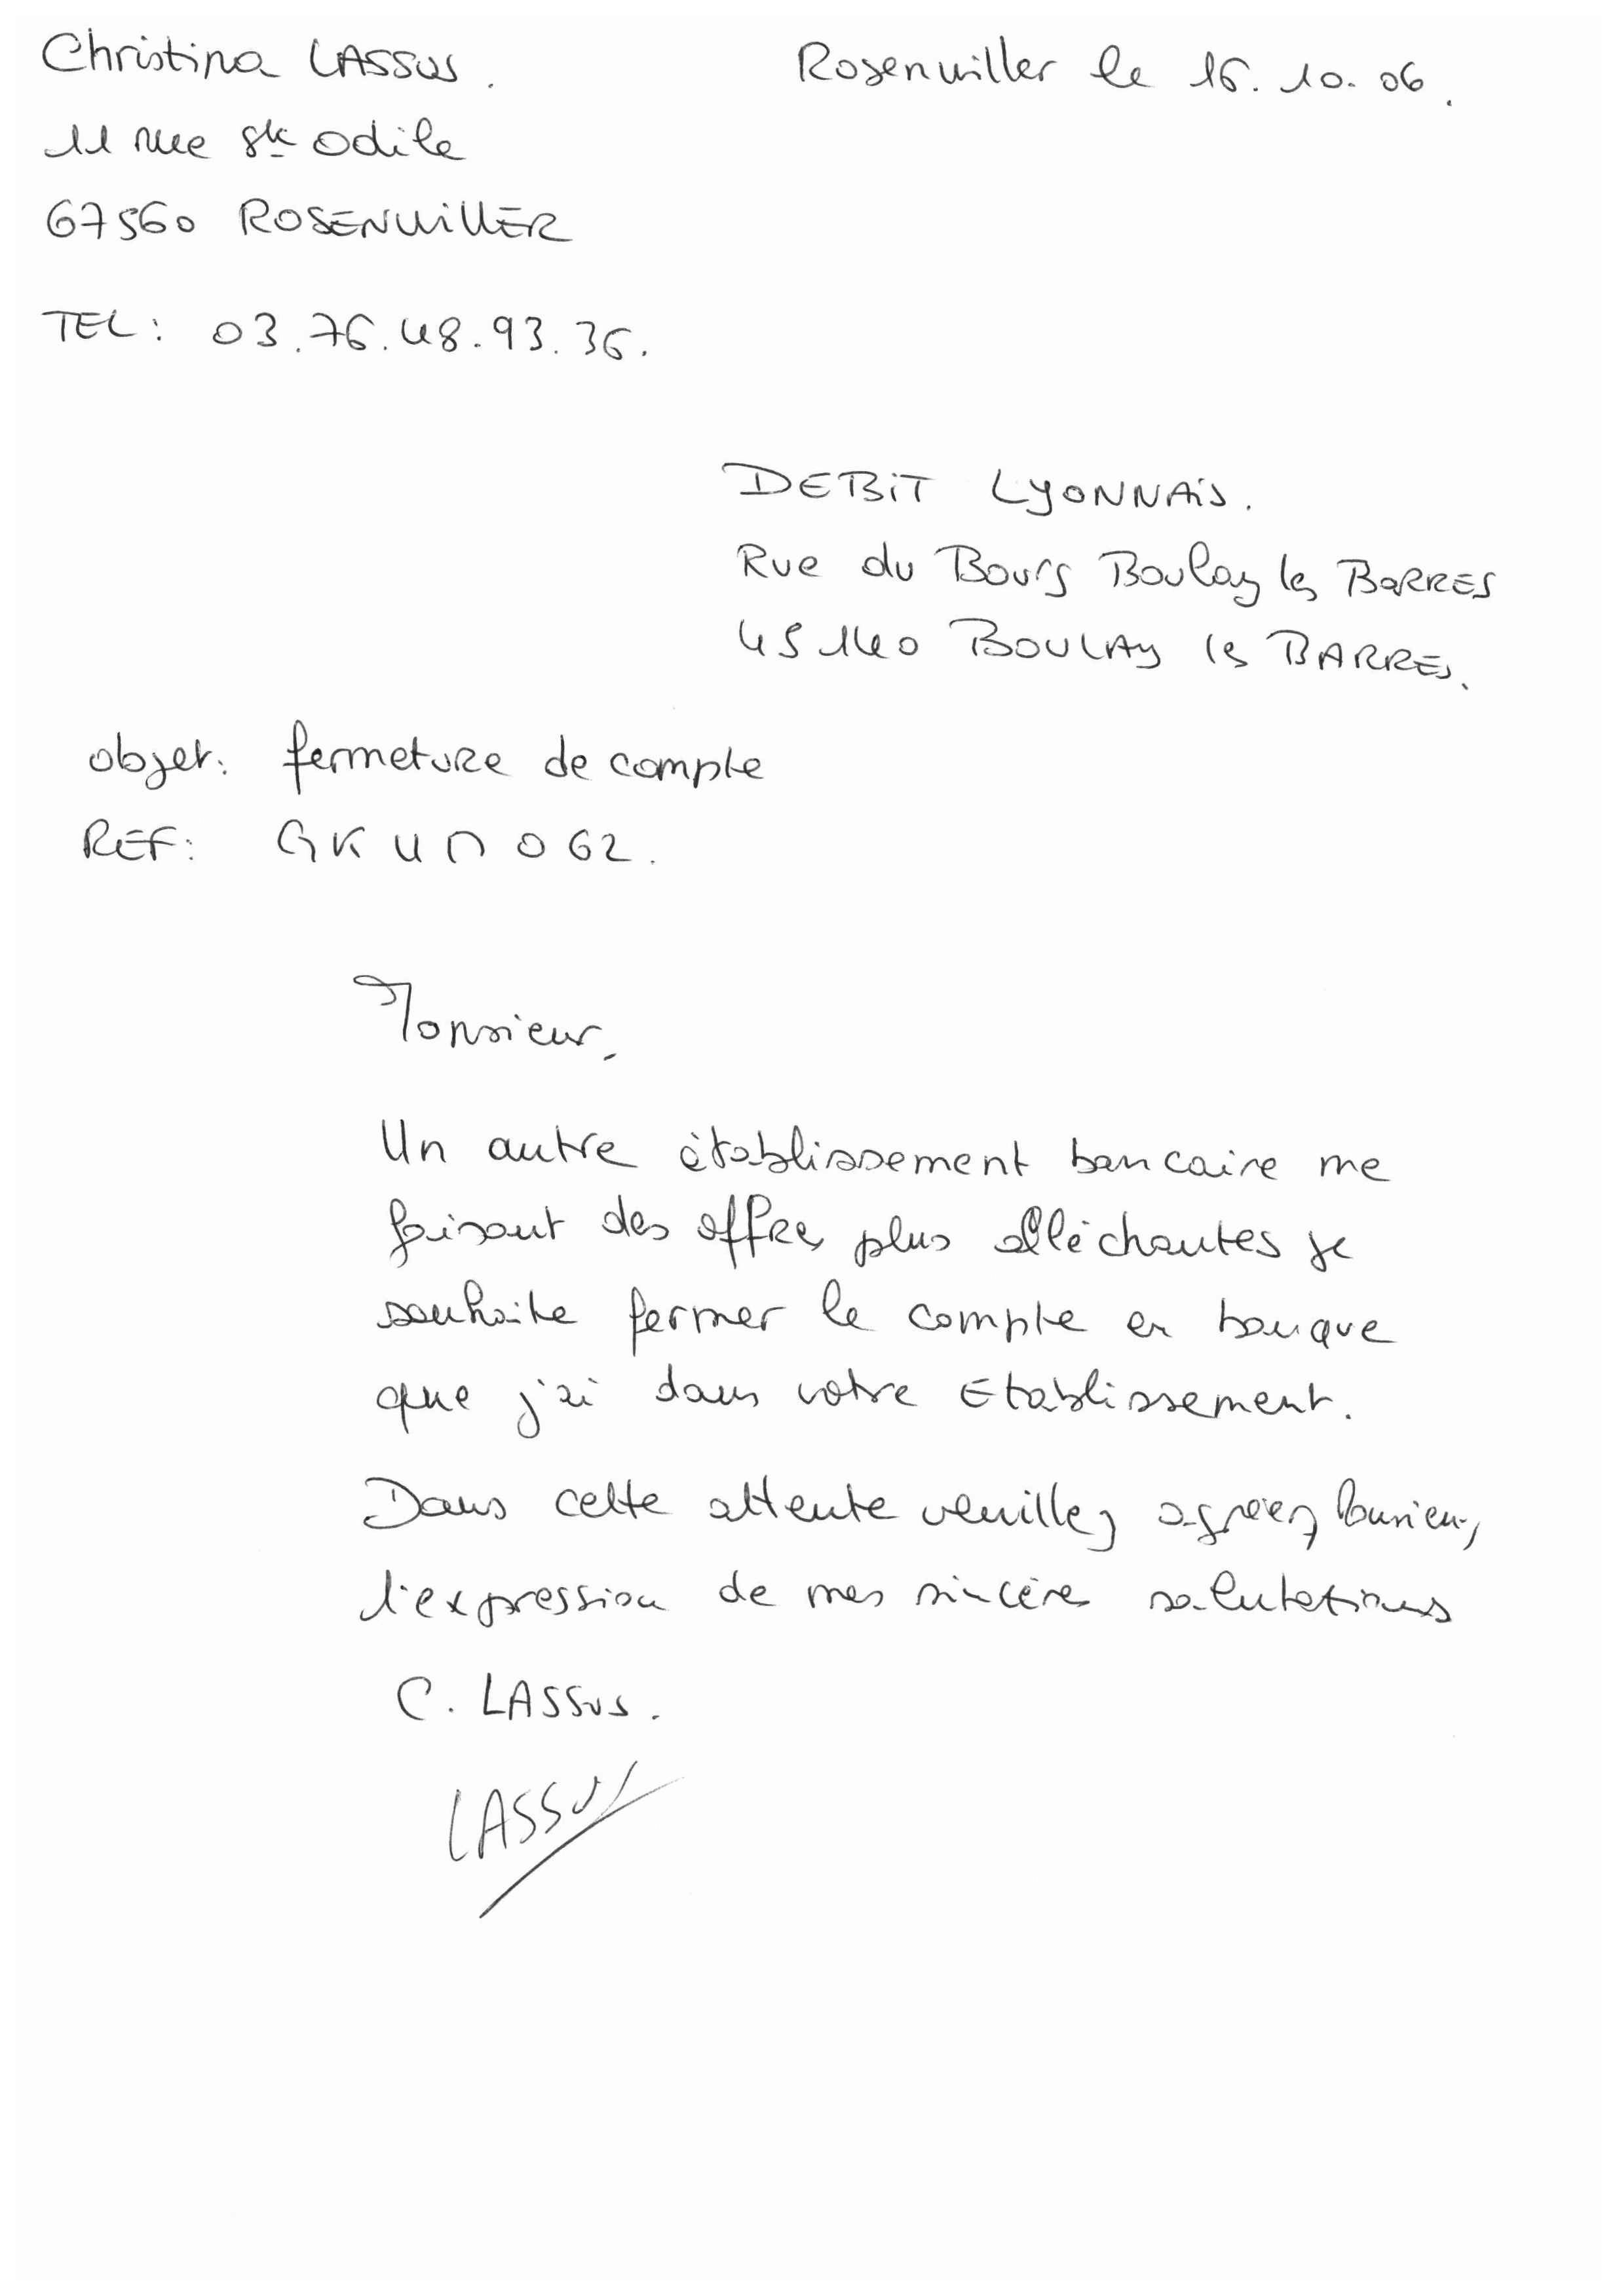 Christina LASSUS.
Rosenwiller le 16.10.06.
11 rue Ste Odile
67560 ROSENWILLER
TEL: 03.76.48.93.36.
DEBIT LYONNAIS.
Rue du Bourg Boulay les BARRES
45140 BOULAY les BARRES.
objet: fermeture de compte
REF: GKUN062.
Monsieur,
Un autre établissement bancaire me
faisant des offres plus alléchantes je
souhaite fermer le compte en banque
que j'ai dans votre Etablissement.
Dans cette attente veuillez agréez Monsieur,
l'expression de mes sincères salutations
C. LASSUS.
LASSUS